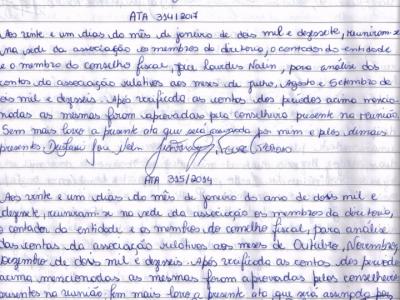 ATA 314/2017
Aos vinte e um dias do mês de janeiro de dois mil e dezessete, reuniram-se
na sede da associação os membros da diretoria, o contador da entidade
e o membro do conselho fiscal, para análise das
contas da associação relativos aos meses de Julho, Agosto e Setembro de
dois mil e dezseis. Após verificada as contas dos períodos acima mencio-
nadas as mesmas foram aprovadas pelo conselheiro presente na reunião.
Sem mais lavro a presente ata que será assinada por mim e pelos demais
presentes.
ATA 315/2017
Aos vinte e um dias do mês de janeiro do ano de dois mil e
dezsete, reuniram-se na sede da associação os membros da diretoria,
o contador da entidade e os membros do conselho fiscal, para análise
das contas da associação relativos aos meses de Outubro, Novembro,
Dezembro de dois mil e dezseis. Após verificada as contas dos períodos
acima mencionadas as mesmas foram aprovadas pelos conselheiros
presentes na reunião. Sem mais lavro a presente ata que será assinada por